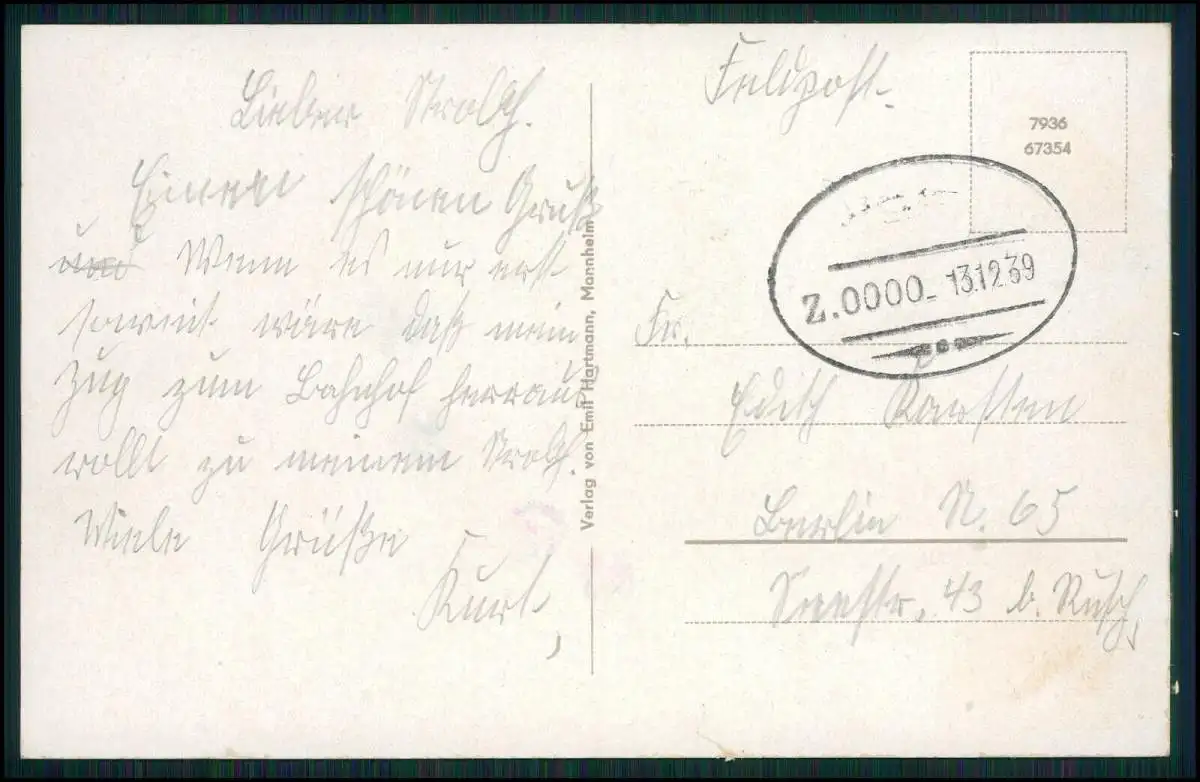 Lieber Strolch.
Einen schönen Gruß
und Wenn es nur erst
soweit wäre daß mein
Zug zum Bahnhof herraus
rollt zu meinem Strolch.
Viele Grüße
Kurt,
Verlag von Emil Hartmann, Mannheim
Feldpost.
7936
67354
Z.0000- 13.12.39
Fr.
Edith Karsten
Berlin N. 65
Seestr. 43 b. Rusch,